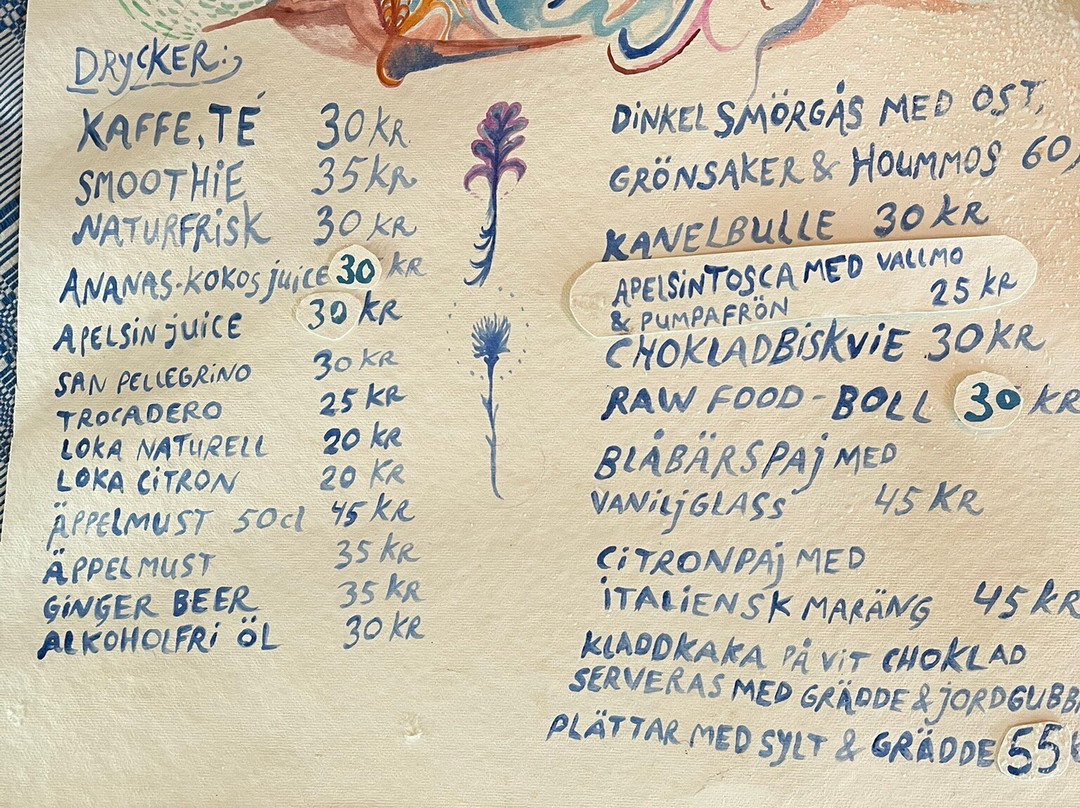 DRYCKER:
KAFFE, TÉ 30 KR
SMOOTHIE 35 KR
NATURFRISK 30 KR
ANANAS-KOKOS JUICE 30 KR
APELSIN JUICE 30 KR
SAN PELLEGRINO 30 KR
TROCADERO 25 KR
LOKA NATURELL 20 KR
LOKA CITRON 20 KR
ÄPPELMUST 50cl 45 KR
ÄPPELMUST 35 KR
GINGER BEER 35 KR
ALKOHOLFRI ÖL 30 KR
DINKELSMÖRGÅS MED OST,
GRÖNSAKER & HOUMMOS 60
KANELBULLE 30 KR
APELSINTOSCA MED VALLMO
& PUMPAFRÖN 25 KR
CHOKLADBISKVIE 30 KR
RAW FOOD-BOLL 30 KR
BLÅBÄRSPAJ MED
VANILJGLASS 45 KR
CITRONPAJ MED
ITALIENSK MARÄNG 45 KR
KLADDKAKA PÅ VIT CHOKLAD
SERVERAS MED GRÄDDE & JORDGUBB
PLÄTTAR MED SYLT & GRÄDDE 55